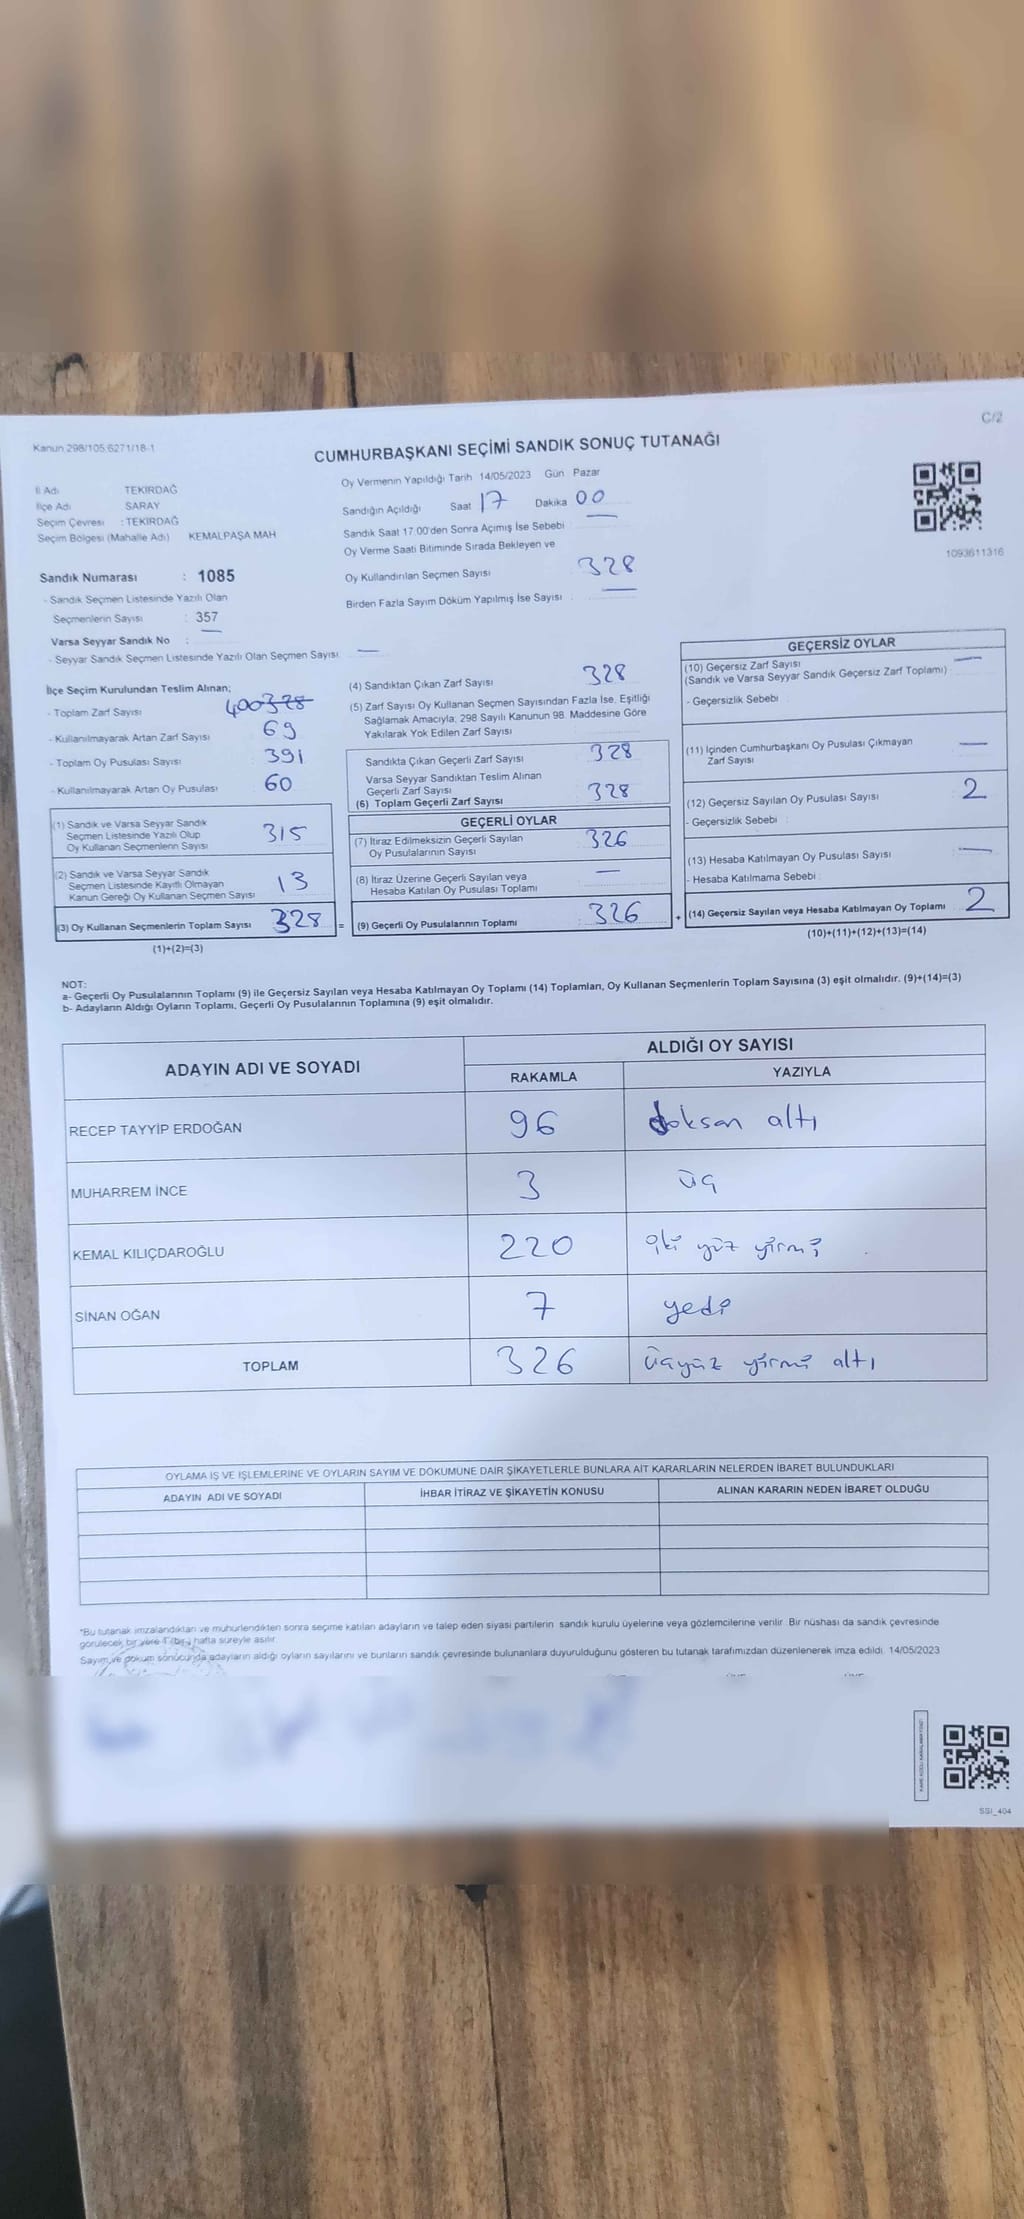 C/2
Kanun 298/105,6271/18-1
CUMHURBAŞKANI SEÇİMİ SANDIK SONUÇ TUTANAĞI
İl Adı TEKİRDAĞ
İlçe Adı SARAY
Seçim Çevresi : TEKİRDAĞ
Seçim Bölgesi (Mahalle Adı) KEMALPAŞA MAH
Sandık Numarası : 1085
- Sandık Seçmen Listesinde Yazılı Olan
Seçmenlerin Sayısı : 357
Varsa Seyyar Sandık No : —
- Seyyar Sandık Seçmen Listesinde Yazılı Olan Seçmen Sayısı —
Oy Vermenin Yapıldığı Tarih 14/05/2023 Gün Pazar
Sandığın Açıldığı Saat 17 Dakika 00
Sandık Saat 17:00'den Sonra Açımış İse Sebebi —
Oy Verme Saati Bitiminde Sırada Bekleyen ve
Oy Kullandırılan Seçmen Sayısı 328
Birden Fazla Sayım Döküm Yapılmış İse Sayısı : —
1093611316
İlçe Seçim Kurulundan Teslim Alınan;
- Toplam Zarf Sayısı 400
- Kullanılmayarak Artan Zarf Sayısı 69
- Toplam Oy Pusulası Sayısı 391
- Kullanılmayarak Artan Oy Pusulası 60
(1) Sandık ve Varsa Seyyar Sandık
Seçmen Listesinde Yazılı Olup
Oy Kullanan Seçmenlerin Sayısı 315
(2) Sandık ve Varsa Seyyar Sandık
Seçmen Listesinde Kayıtlı Olmayan
Kanun Gereği Oy Kullanan Seçmen Sayısı 13
(3) Oy Kullanan Seçmenlerin Toplam Sayısı 328 =
(1)+(2)=(3)
(4) Sandıktan Çıkan Zarf Sayısı 328
(5) Zarf Sayısı Oy Kullanan Seçmen Sayısından Fazla İse, Eşitliği
Sağlamak Amacıyla, 298 Sayılı Kanunun 98. Maddesine Göre
Yakılarak Yok Edilen Zarf Sayısı
Sandıkta Çıkan Geçerli Zarf Sayısı 328
Varsa Seyyar Sandıktan Teslim Alınan
Geçerli Zarf Sayısı
(6) Toplam Geçerli Zarf Sayısı 328
GEÇERLİ OYLAR
(7) İtiraz Edilmeksizin Geçerli Sayılan
Oy Pusulalarının Sayısı 326
(8) İtiraz Üzerine Geçerli Sayılan veya
Hesaba Katılan Oy Pusulası Toplamı —
(9) Geçerli Oy Pusulalarının Toplamı : 326 +
GEÇERSİZ OYLAR
(10) Geçersiz Zarf Sayısı —
(Sandık ve Varsa Seyyar Sandık Geçersiz Zarf Toplamı)
- Geçersizlik Sebebi
(11) İçinden Cumhurbaşkanı Oy Pusulası Çıkmayan
Zarf Sayısı —
(12) Geçersiz Sayılan Oy Pusulası Sayısı 2
- Geçersizlik Sebebi :
(13) Hesaba Katılmayan Oy Pusulası Sayısı —
- Hesaba Katılmama Sebebi
(14) Geçersiz Sayılan veya Hesaba Katılmayan Oy Toplamı 2
(10)+(11)+(12)+(13)=(14)
NOT:
a- Geçerli Oy Pusulalarının Toplamı (9) ile Geçersiz Sayılan veya Hesaba Katılmayan Oy Toplamı (14) Toplamları, Oy Kullanan Seçmenlerin Toplam Sayısına (3) eşit olmalıdır. (9)+(14)=(3)
b- Adayların Aldığı Oyların Toplamı, Geçerli Oy Pusulalarının Toplamına (9) eşit olmalıdır.
ADAYIN ADI VE SOYADI
ALDIĞI OY SAYISI
RAKAMLA YAZIYLA
RECEP TAYYİP ERDOĞAN 96 doksan altı
MUHARREM İNCE 3 üç
KEMAL KILIÇDAROĞLU 220 iki yüz yirmi
SİNAN OĞAN 7 yedi
TOPLAM 326 üçyüz yirmi altı
OYLAMA İŞ VE İŞLEMLERİNE VE OYLARIN SAYIM VE DÖKÜMÜNE DAİR ŞİKAYETLERLE BUNLARA AİT KARARLARIN NELERDEN İBARET BULUNDUKLARI
ADAYIN ADI VE SOYADI İHBAR İTİRAZ VE ŞİKAYETİN KONUSU ALINAN KARARIN NEDEN İBARET OLDUĞU
*Bu tutanak imzalandıktan ve mühürlendikten sonra seçime katılan adayların ve talep eden siyasi partilerin sandık kurulu üyelerine veya gözlemcilerine verilir. Bir nüshası da sandık çevresinde
görülecek bir yere 1 (bir) hafta süreyle asılır.
Sayım ve döküm sonucunda adayların aldığı oyların sayılarını ve bunların sandık çevresinde bulunanlara duyurulduğunu gösteren bu tutanak tarafımızdan düzenlenerek imza edildi. 14/05/2023
SSI_404